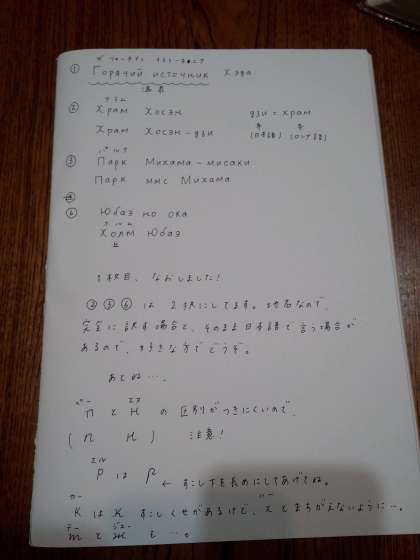 ① Горячий источник Хэда
温泉
フラム
② Храм Хосэн дзи = храм
Храм Хосэн-дзи (日本語) (ロシア語)
パルク
③ Парк Михама-мисаки
Парк мыс Михама
⑥ Юбаэ но ока
Холм Юбаэ
丘
1枚目、なおしました!
②③⑥は 2択にしてます。地名なので、
完全に訳す場合と、そのまま日本語で言う場合が
あるので、お好きな方でどうぞ。
あとね…、
ペー エヌ
п と н の区別がつきにくいので、
(п н) 注意!
エル
р は р ← すこし下を長めにしてあげてね。
カー
к は к すこしくせがあるけど、х とまちがえないように…。
テー
т と м も…。